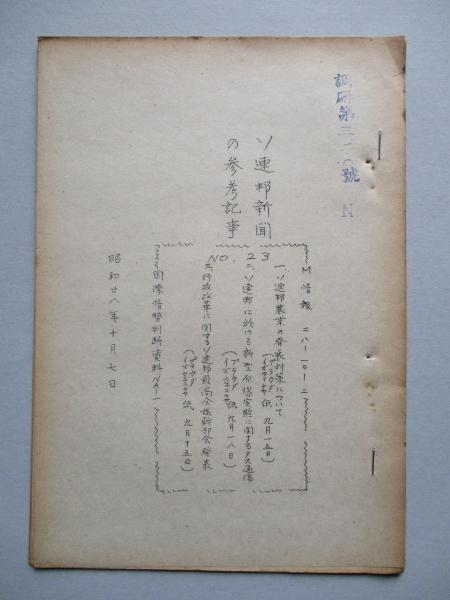 調研第二一〇號 N
ソ連邦新聞
の参考記事
NO.23
M情報 二八-一〇-二三
一、ソ連邦農業の発展対策について
(プラウダ イズヴェスチヤ 紙 九月一五日)
二、ソ連邦に於ける新型原爆実験に関するタス通信
(プラウダ イズヴェスチヤ 紙 九月一八日)
三、行政改革に関するソ連邦最高会議幹部会発表
(プラウダ イズヴェスチヤ 紙 九月十五日)
国際情勢判断資料NA-1
昭和廿八年十月七日